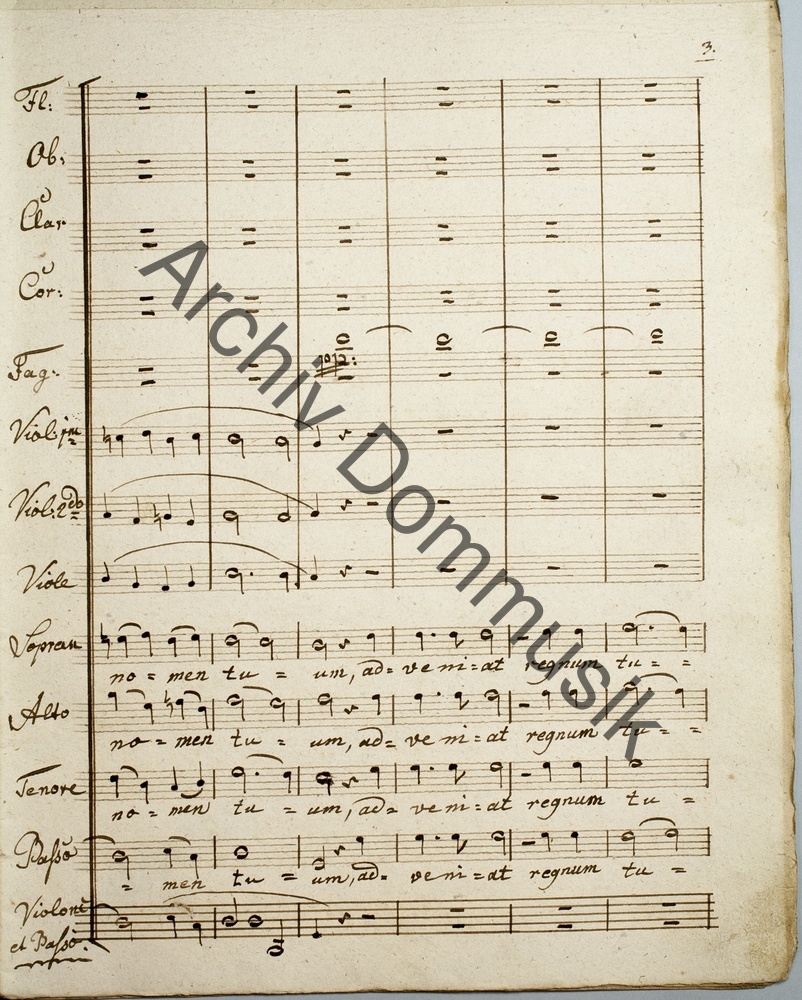 3.
Fl:
Ob:
Clar
Cor:
Fag:
1º 12:
Viol: pmº
Viol: 2do
Viole
Sopran
no = men tu = um, ad= ve ni=at regnum tu = =
Alto
no = men tu = um, ad= ve ni=at regnum tu = =
Tenore
no = men tu = um, ad= ve ni=at regnum tu =
Basso
= men tu = um, ad= ve ni=at regnum tu =
Violone
et Basso
Archiv Dommusik